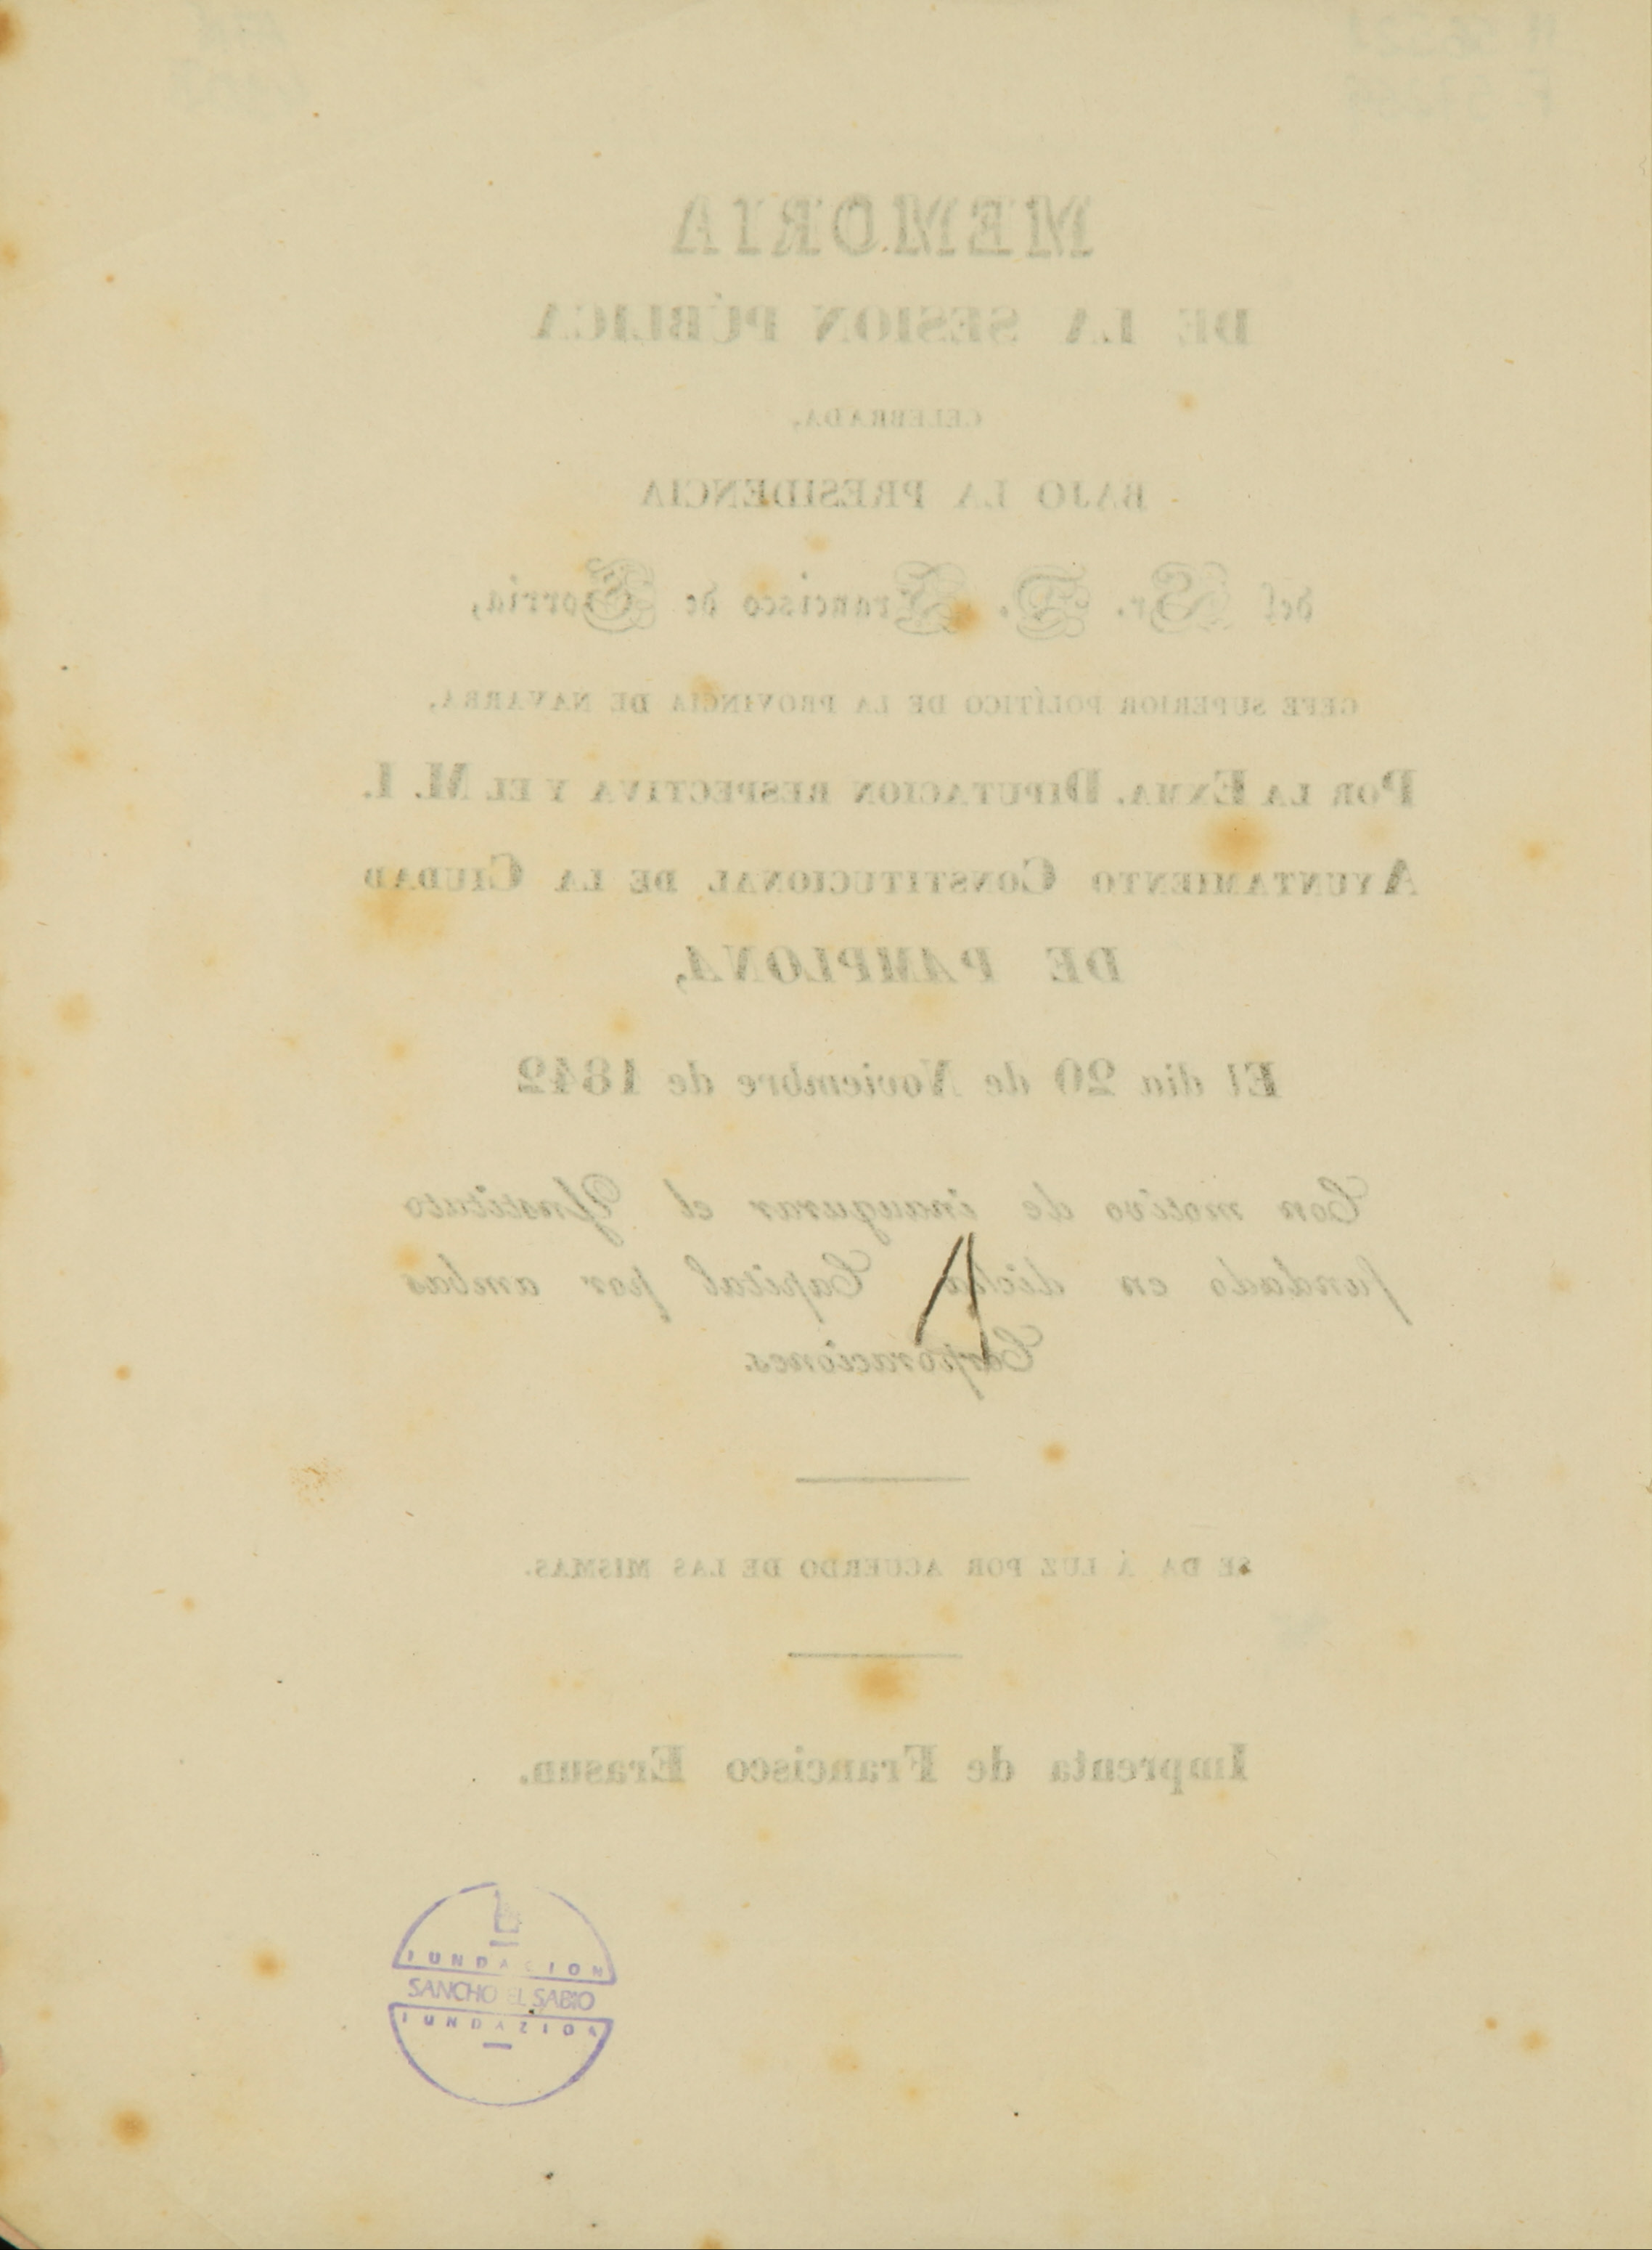 MEMORIA
DE LA SESION PÚBLICA
CELEBRADA,
BAJO LA PRESIDENCIA
del Sr. D. Francisco de Gorria,
GEFE SUPERIOR POLÍTICO DE LA PROVINCIA DE NAVARRA,
POR LA EXMA. DIPUTACION RESPECTIVA Y EL M. I.
AYUNTAMIENTO CONSTITUCIONAL DE LA CIUDAD
DE PAMPLONA,
El dia 20 de Noviembre de 1842
Con motivo de inaugurar el Ynstituto
fundado en dicha Capital por ambas
Corporaciones.
SE DA Á LUZ POR ACUERDO DE LAS MISMAS.
Imprenta de Francisco Erasun.
FUNDACION
SANCHO EL SABIO
FUNDAZIOA